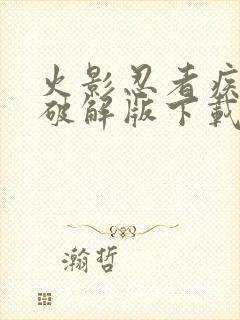 火影忍者疾
破解版下載
瀚哲